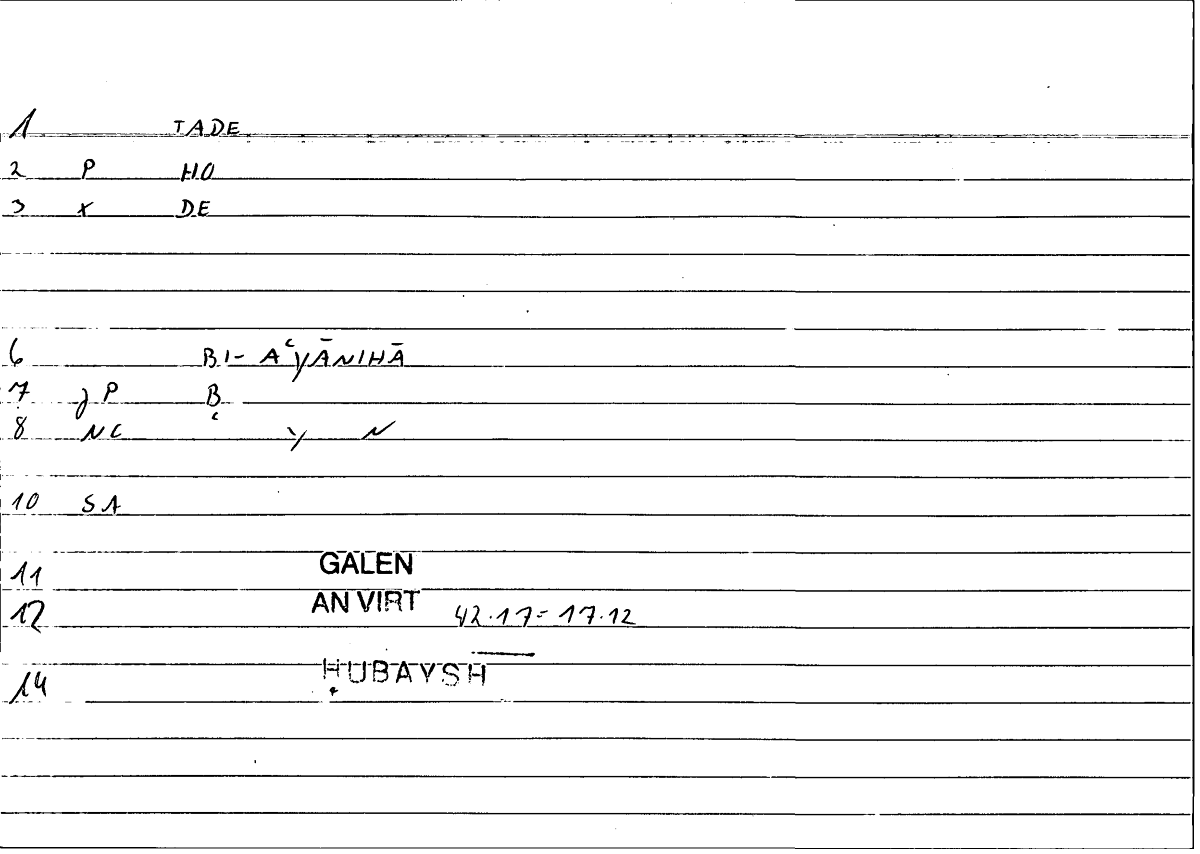 1 TADE
2 P HO
3 x DE
6 BI- AʿYĀNIHĀ
7 jP B
8 NC ʿ Y N
10 SA
11 GALEN
12 AN VIRT 42.17=17.12
14 ḤUBAYSH